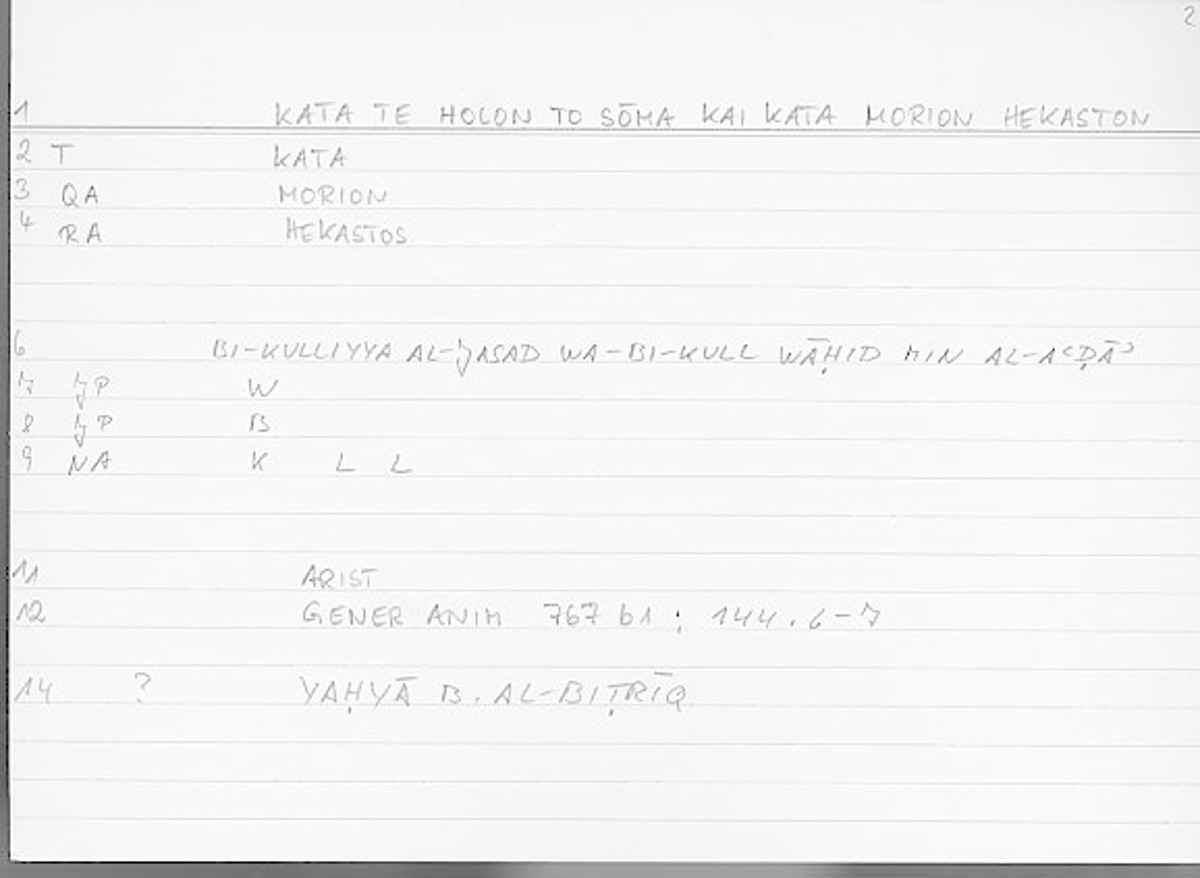 2
1 KATA TE HOLON TO SŌMA KAI KATA MORION HEKASTON
2 T KATA
3 QA MORION
4 RA HEKASTOS
6 BI-KULLIYYA AL-JASAD WA-BI-KULL WĀḤID MIN AL-AʿḌĀʾ
7 JP W
8 JP B
9 NA K L L
11 ARIST
12 GENER ANIM 767 b1 ; 144.6-7
14 ? YAḤYĀ B. AL-BIṬRĪQ